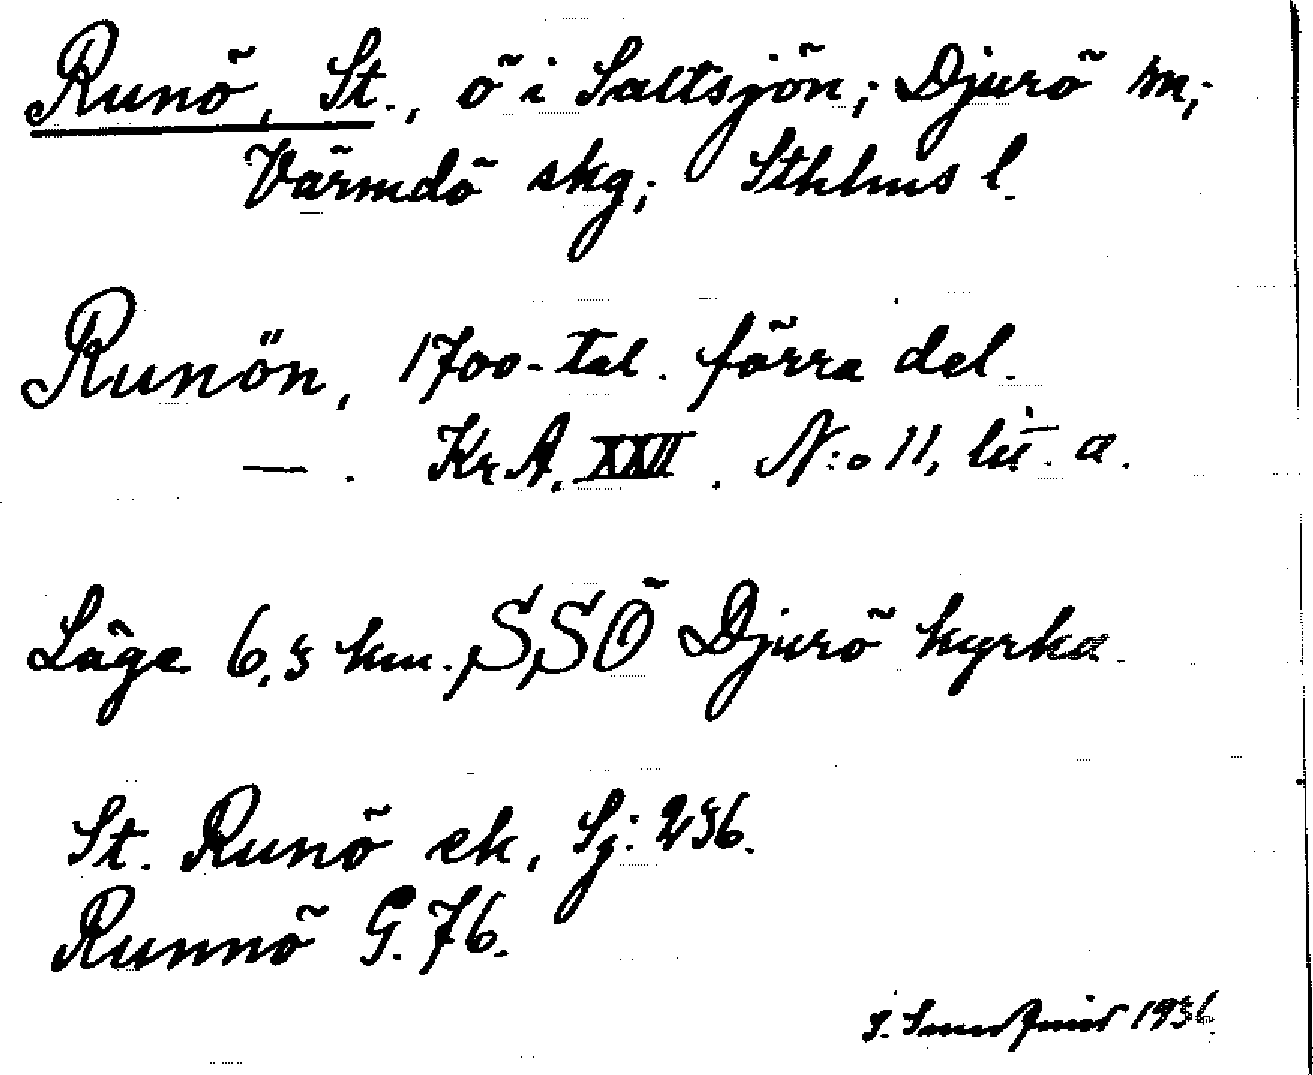 Runö, St., ö i Saltsjön; Djurö sn;
Värmdö skg; Sthlms l.
Runön, 1700-tal. förra del.
— . Kr.A. XXII. N:o 11, lit. a.
Läge 6,5 km. SSÖ Djurö kyrka.
St. Runö ek, Sj: 236.
Runnö G. 76.
1936